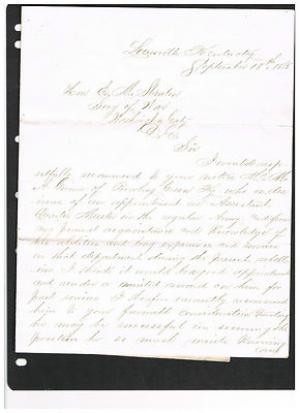 Louisville Kentucky
September 18th 1865
Hon E. M. Stanton
Secry of War
Washington City
D. C.
Sir
I would resp
ectfully recommend to your notice
of Bowling Green Ky, who is desi
rous of an appointment as Assistant
Quarter Master in the regular Army, and from
my personal acquaintance and Knowledge of
his abilities and long experience and service
in that department during the present rebell
ion I think it would be a good appointment
and render a merited reward on him for
past service I therefore earnestly recommend
him to your favorable consideration trusting
he may be successful in securing the
position he so much merits